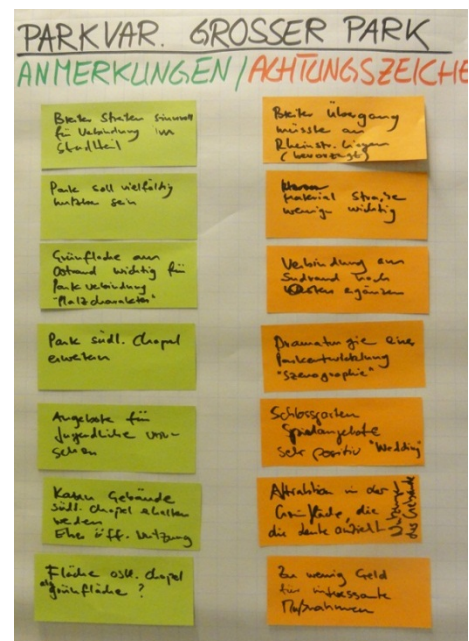 PARKVAR. GROSSER PARK
ANMERKUNGEN/ACHTUNGSZEICHE
Breiter Streifen sinnvoll
für Verbindung im
Stadtteil
Park soll vielfältig
nutzbar sein
Grünfläche am
Ostrand wichtig für
Park Verbindung
"Platzcharakter"
Park südl. Chapel
erweitern
Angebote für
Jugendliche vor-
sehen
Kann Gebäude
südl. Chapel erhalten
werden
Eher öff. Nutzung
Fläche östl. Chapel
als Grünfläche ?
Breiter Übergang
müsste an
Rheinstr. liegen
(bevorzugt)
Material Straße
weniger wichtig
Verbindung am
Südrand nach
Westen ergänzen
Dramaturgie einer
Parkentwicklung
"Szenographie"
Schlossgarten
Spielangebote
sehr positiv "Wedding"
Attraktion in der
Grünfläche, die
die Leute anzieht
Nutzungen
das Gebäude
Zu wenig Geld
für interessante
Maßnahmen